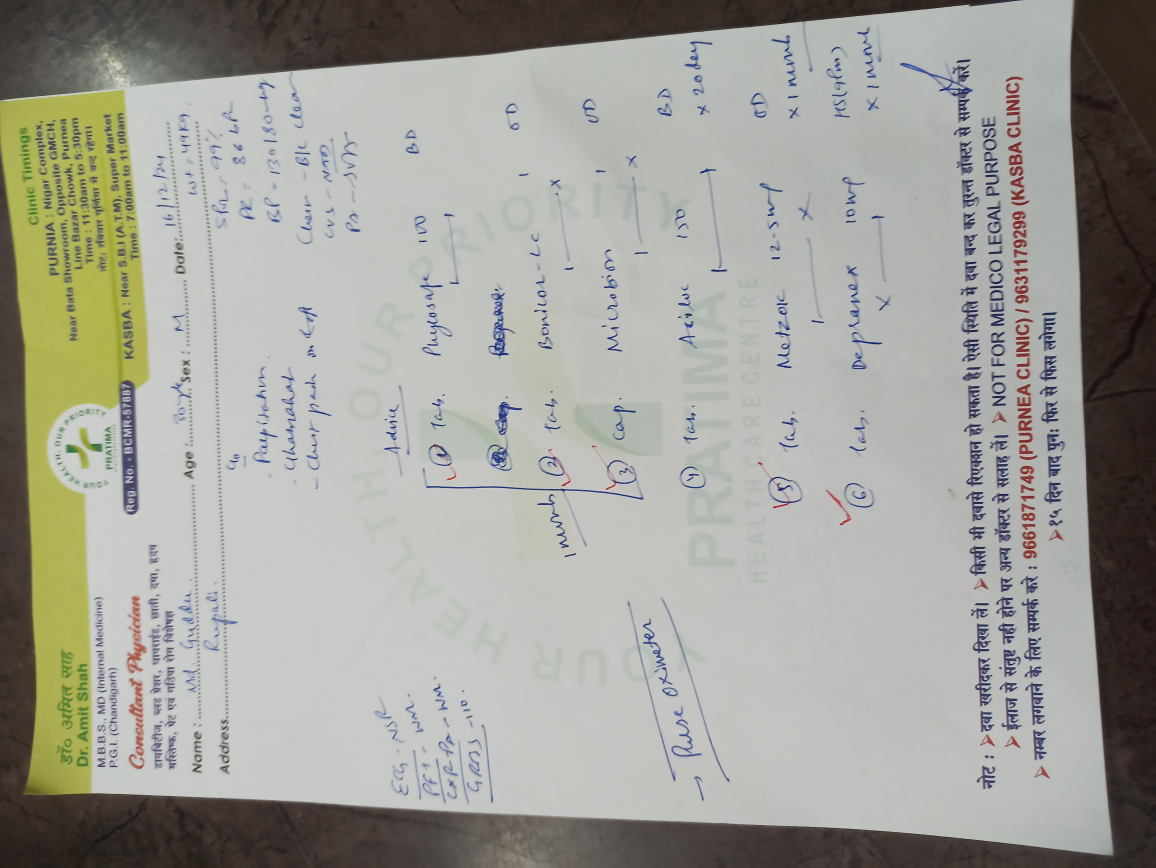 डॉ० अमित साह
Dr. Amit Shah
M.B.B.S., MD (Internal Medicine)
P.G.I. (Chandigarh)
Consultant Physician
डायबिटीज, ब्लड प्रेशर, थायराईड, छाती, दमा, हृदय
मस्तिष्क, पेट एवं गठिया रोग विशेषज्ञ
YOUR HEALTH, OUR PRIORITY
PRATIMA
Reg. No. - BCMR-57887
Clinic Timings
PURNIA : Nigar Complex,
Near Bata Showroom, Opposite GMCH,
Line Bazar Chowk, Purnea
Time : 11:30am to 5:30pm
नोट: रविवार पूर्णिया में बन्द रहेगा।
KASBA : Near S.B.I (A.T.M), Super Market
Time : 7:00am to 11:00am
Name : Md. Guddu Age : 30 yr Sex : M Date: 16/12/24
Address Rupali Wt = 49kg
SPO2 = 99%
PR = 86 b/m
BP - 130/80 mmHg
Chest - B/L clear
CVS - NAD
c/o
- Palpitation
- Ghabrahat
- Chest pain on left
ECG - NSR
PFT - WNL
CXR PA - WNL
GRBS - 110
Advice
1 Tab. 100 BD
2 Tab. Bonicor-LC OD
3 Cap. Microbion OD
1 month
4 Tab. 150 BD
x 20 day
5 Tab. Metzok 12.5 mg OD
x 1 month
6 Tab. Depranex 10 mg HS (9 pm)
x 1 month
→ Pulse Oximeter
YOUR HEALTH OUR PRIORITY
PRATIMA
HEALTHCARE CENTRE
नोट : ➤ दवा खरीदकर दिखा लें। ➤ किसी भी दवासे रिएक्शन हो सकता है। ऐसी स्थिति में दवा बन्द कर तुरन्त डॉक्टर से सम्पर्क करें।
➤ ईलाज से संतुष्ट नही होने पर अन्य डॉक्टर से सलाह लें। ➤ NOT FOR MEDICO LEGAL PURPOSE
➤ नम्बर लगवाने के लिए सम्पर्क करे : 9661871749 (PURNEA CLINIC) / 9631179299 (KASBA CLINIC)
➤ १५ दिन बाद पुनः फिर से फिस लगेगा।